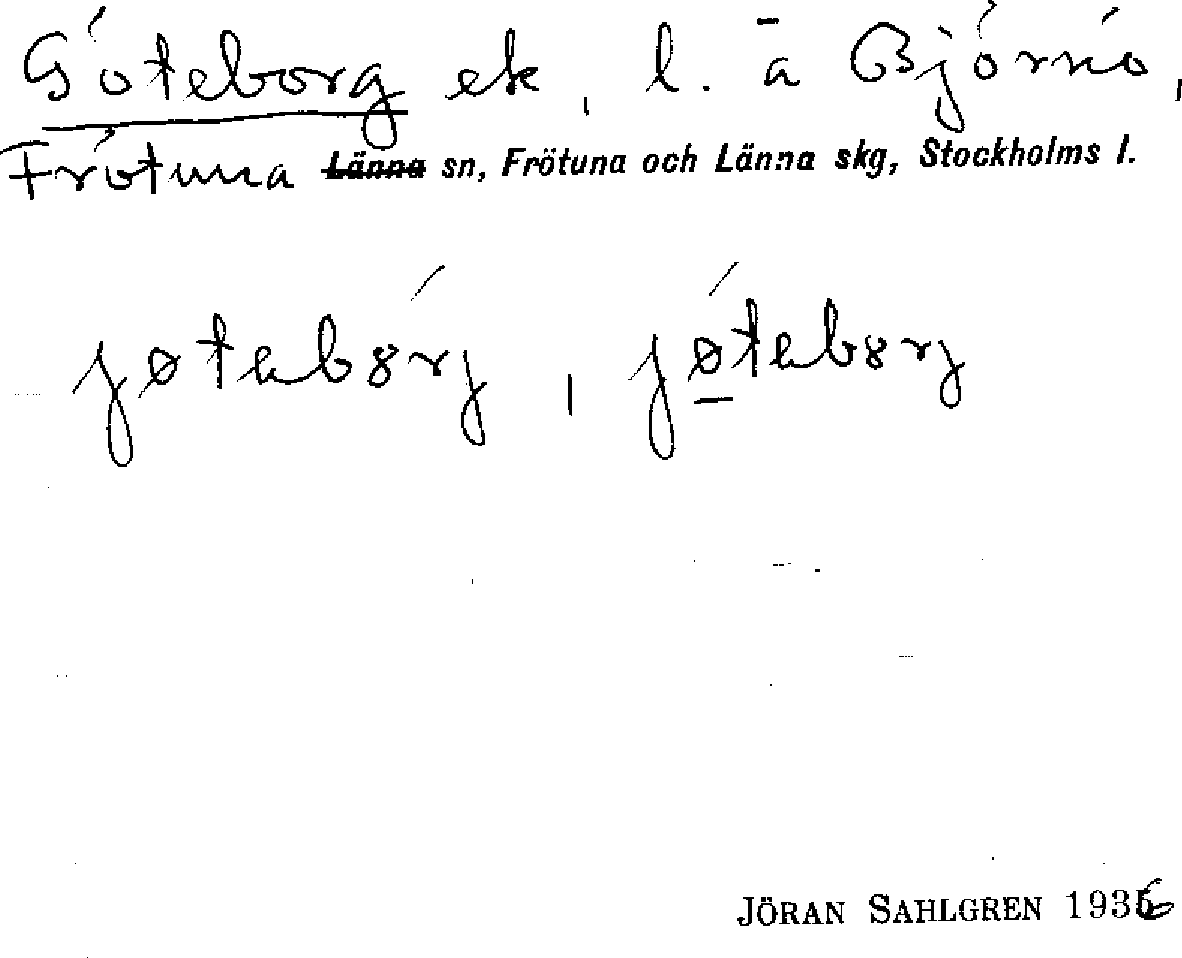 Göteborg ek, l. å Björnö,
Frötuna Länna sn, Frötuna och Länna skg, Stockholms l.
jøtebórj, jǿ̱teborj
JÖRAN SAHLGREN 1936